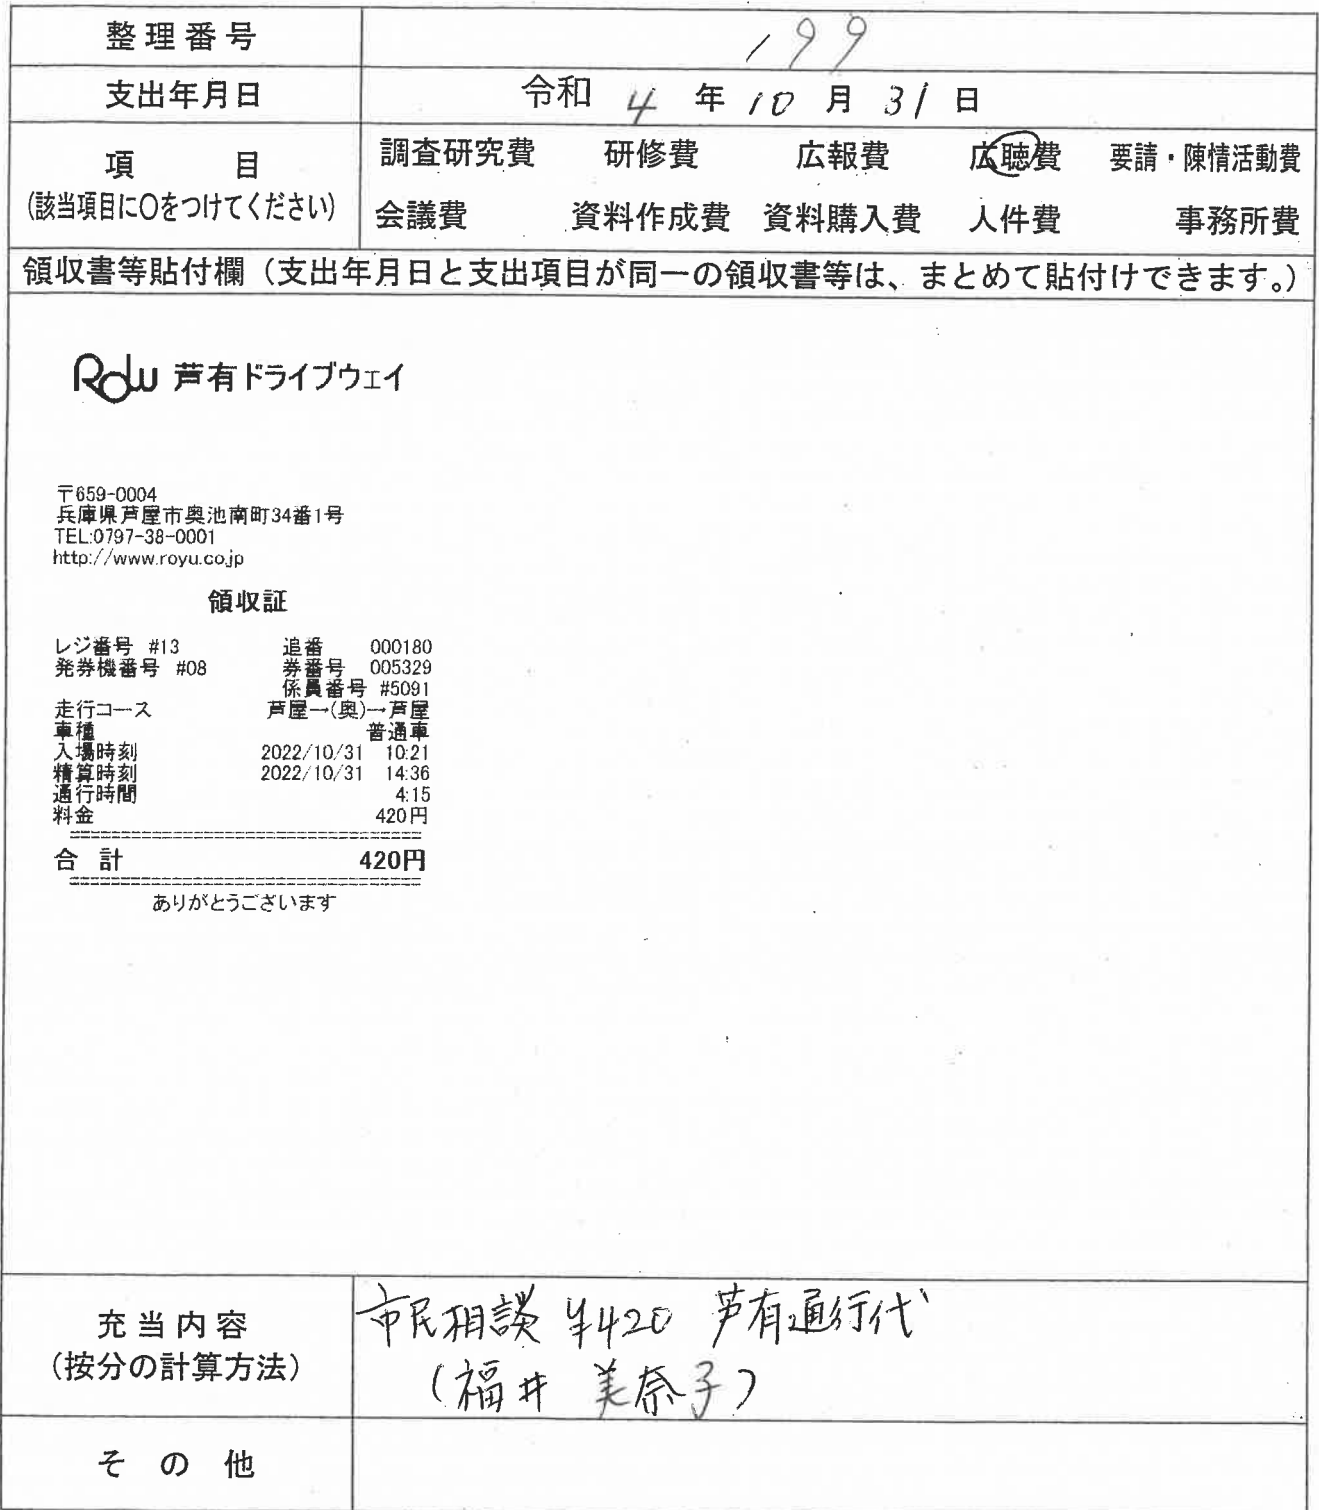 整理番号 199
支出年月日 令和 4 年 10 月 31 日
項 目 調査研究費 研修費 広報費 広聴費 要請・陳情活動費
(該当項目に〇をつけてください) 会議費 資料作成費 資料購入費 人件費 事務所費
領収書等貼付欄（支出年月日と支出項目が同一の領収書等は、まとめて貼付けできます。）
Row 芦有ドライブウェイ
〒659-0004
兵庫県芦屋市奥池南町34番1号
TEL:0797-38-0001
http://www.royu.co.jp
領収証
レジ番号 #13 追番 000180
発券機番号 #08 券番号 005329
係員番号 #5091
走行コース 芦屋→(奥)→芦屋
車種 普通車
入場時刻 2022/10/31 10:21
精算時刻 2022/10/31 14:36
通行時間 4:15
料金 420円
合 計 420円
ありがとうございます
充当内容 市民相談 ¥420 芦有通行代
(按分の計算方法) (福井 美奈子)
その他